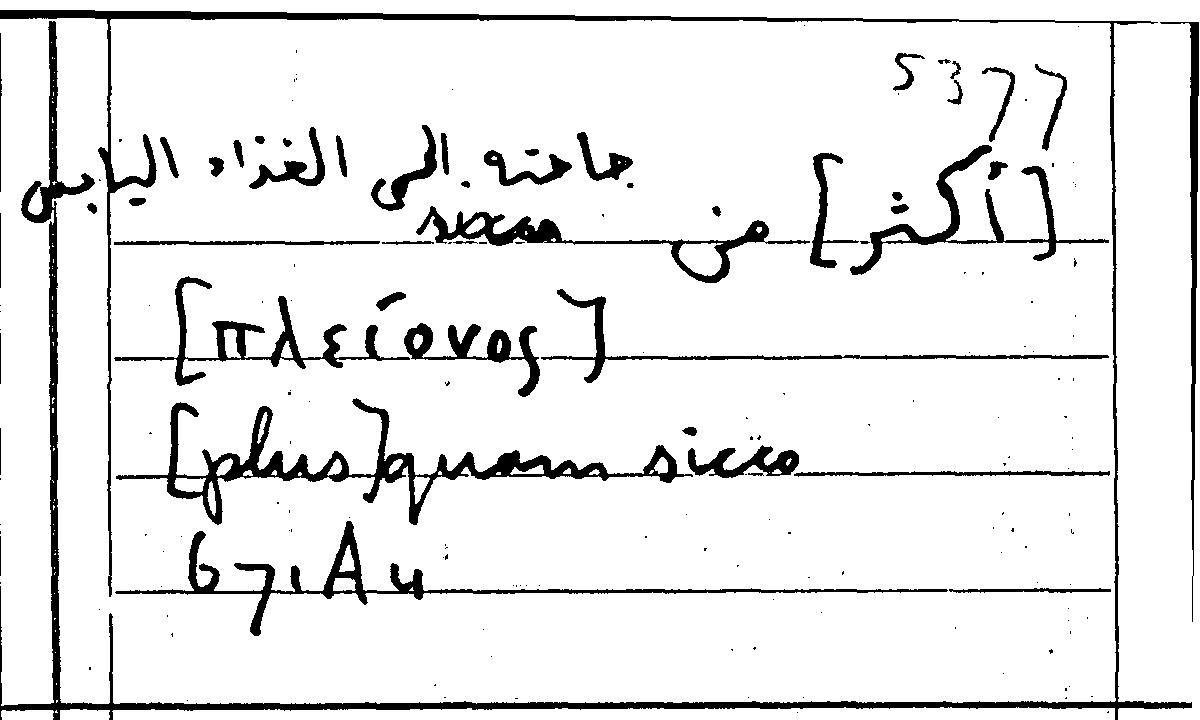 5377
[أكثر] من حاجته إلى الغذاء اليابس
sicca
[πλείονος]
[plus] quam sicco
671A4